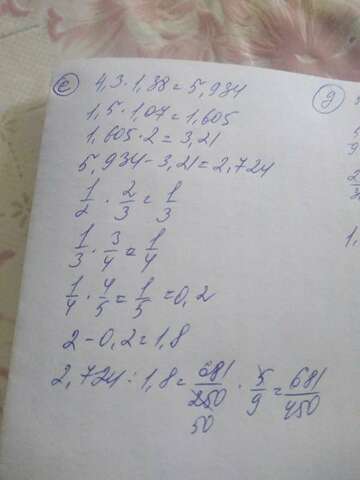 е) 4,3·1,38=5,934
1,5·1,07=1,605
1,605·2=3,21
5,934-3,21=2,724
1/2 · 2/3 = 1/3
1/3 · 3/4 = 1/4
1/4 · 4/5 = 1/5 = 0,2
2-0,2=1,8
2,724:1,8= 681/250 · 5/9 = 681/450
50
g)
1,